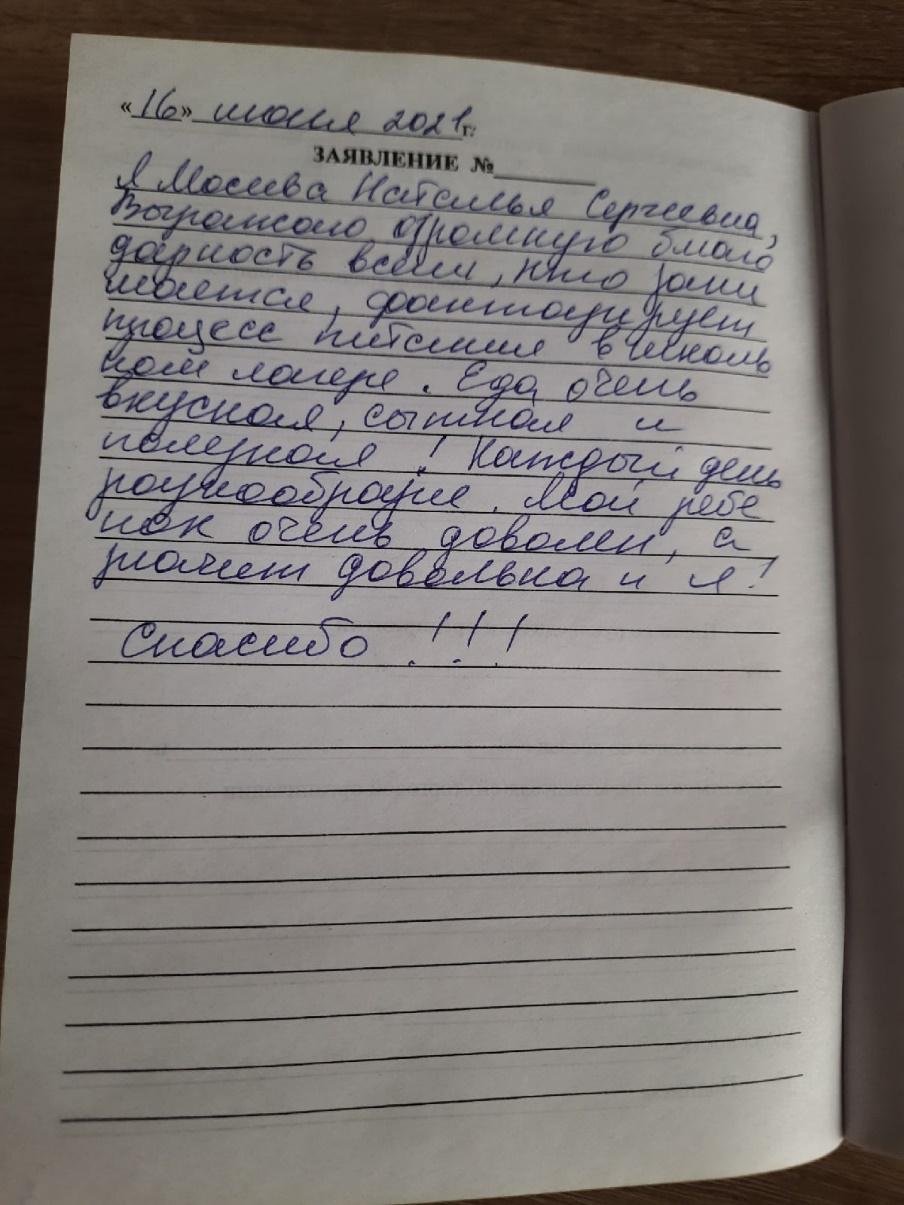 «16» июня 2021г.
ЗАЯВЛЕНИЕ №
Я Мосева Наталья Сергеевна,
Выражаю огромную благо
дарность всем, кто зани
мается, фантазирует
процесс питания в школь
ном лагере. Еда очень
вкусная, сытная и
полезная! Каждый день
разнообразие. Мой ребе
нок очень доволен, а
значит довольна и я!
Спасибо!!!